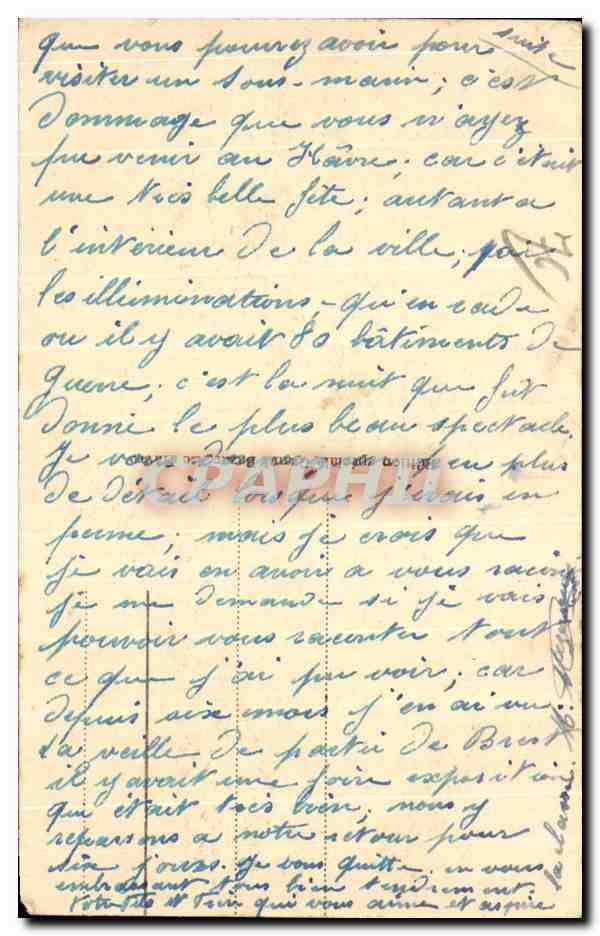 suite
que vous pourrez avoir pour
visiter un sous-marin; c'est
dommage que vous n'ayez
pu venir au Hâvre; car c'était
une très belle fête; autant a
l'intérieur de la ville, par
les illuminations, qu'en rade
ou il y avait 80 bâtiments de
guerre; c'est la nuit que fut
donné le plus beau spectacle.
Je vous en plus
de détail lorsque j'irais en
perme; mais je crois que
je vais en avoir a vous racon
je me demande si je vais
pouvoir vous raconter tout
ce que j'ai pu voir; car
depuis six mois j'en ai vu
La veille de partir de Brest
il y avait une foire exposition
qui était très bien; nous y
repassons a notre retour pour
six jours. Je vous quitte en vous
embrassant tous bien tendrement.
Votre fils et qui vous aime et aspire
la classe. M.
CPARHIL